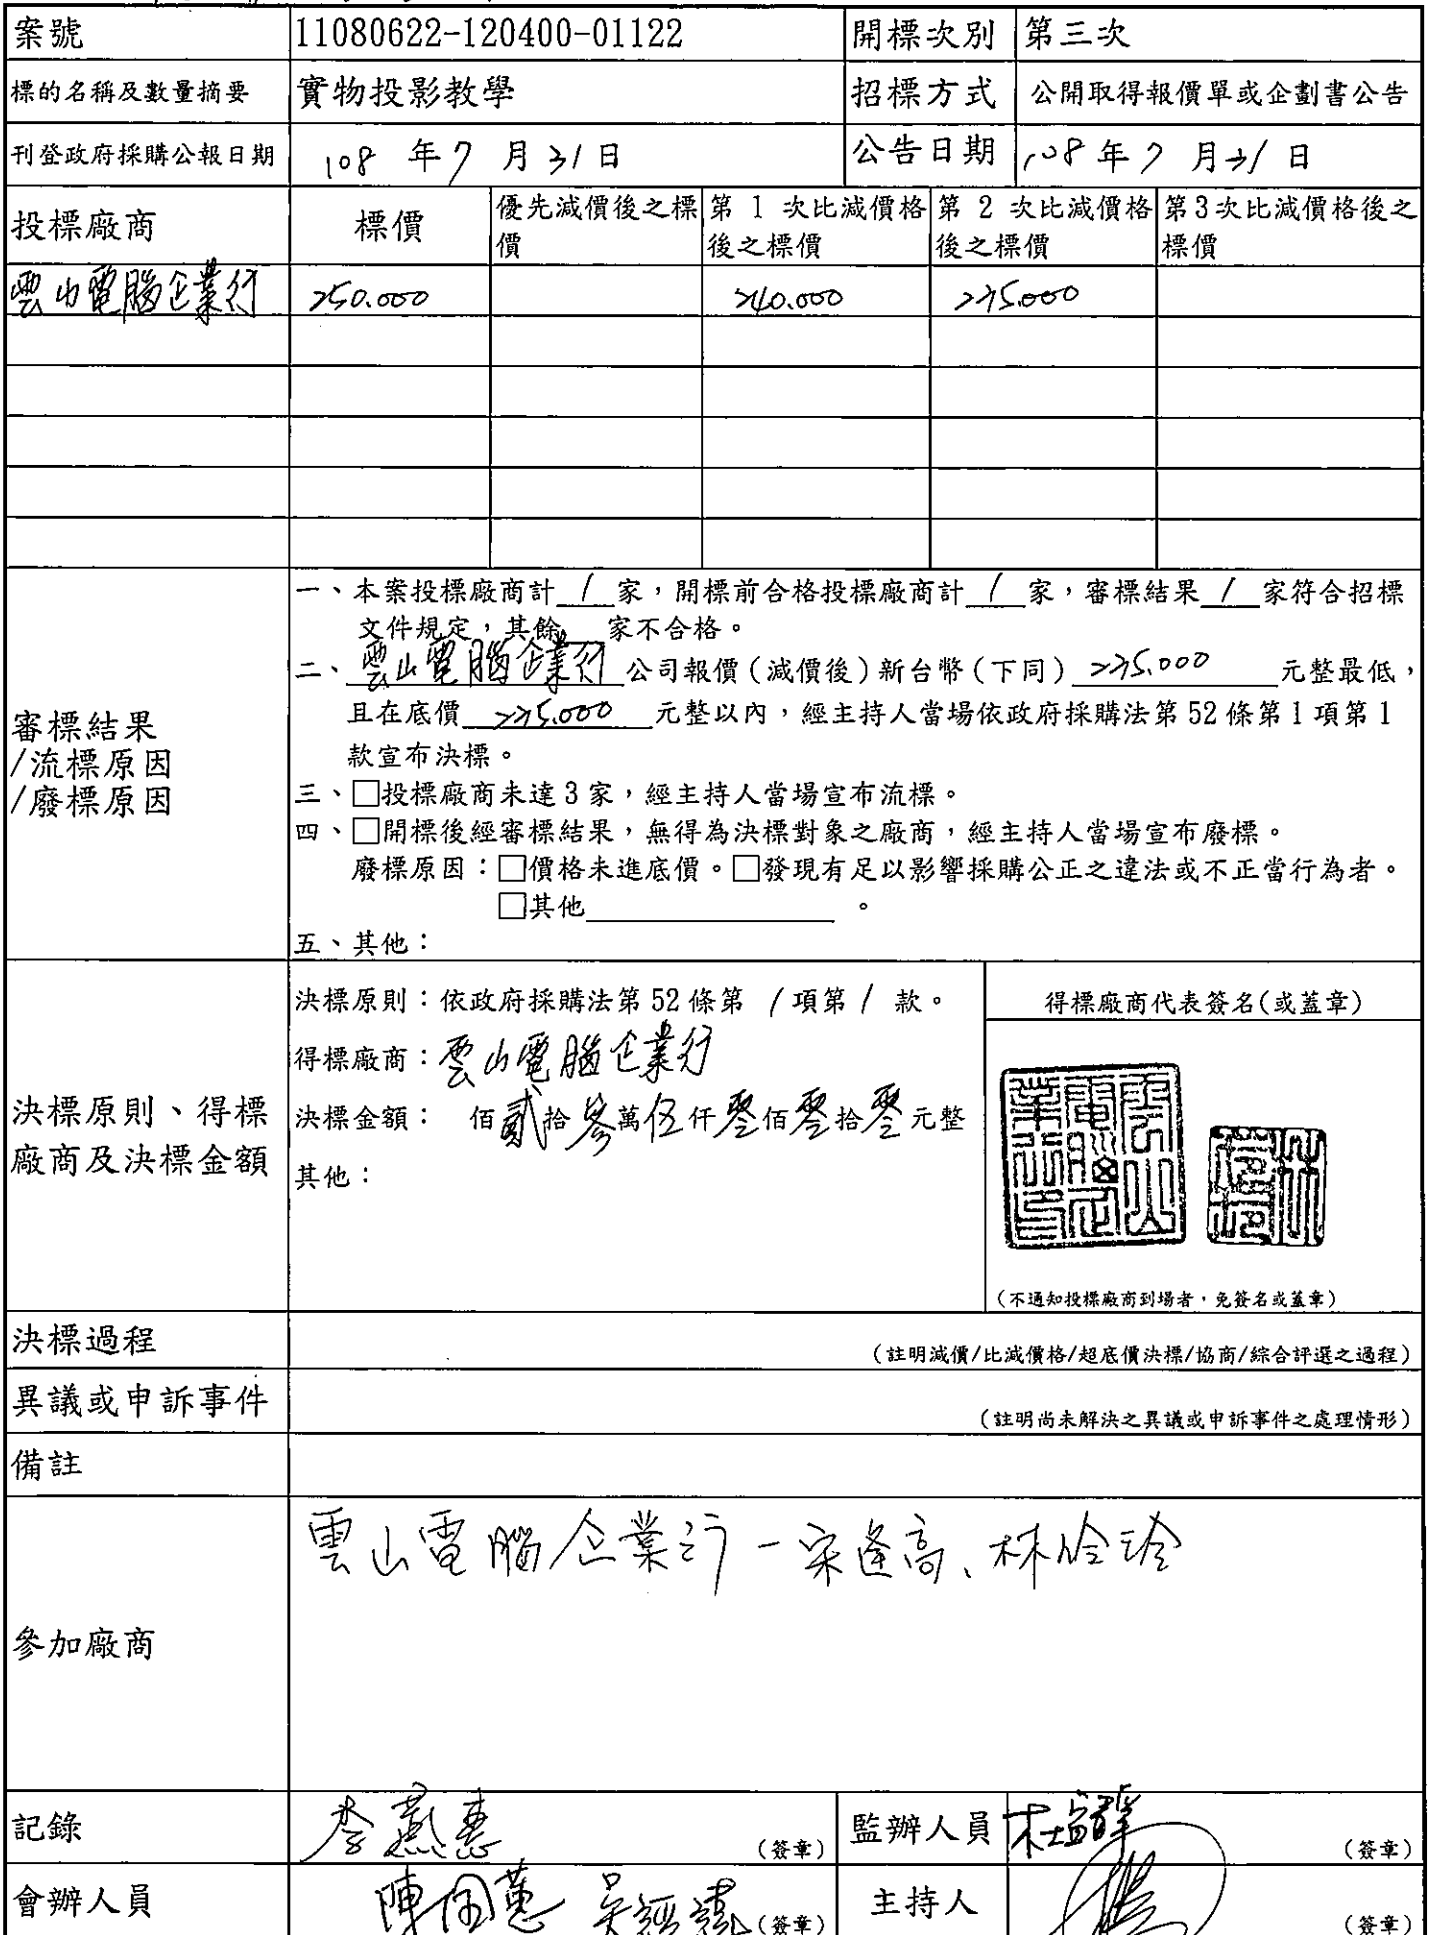 案號 11080622-120400-01122 開標次別 第三次
標的名稱及數量摘要 實物投影教學 招標方式 公開取得報價單或企劃書公告
刊登政府採購公報日期 108 年 7 月 31 日 公告日期 108 年 7 月 31 日
投標廠商 標價 優先減價後之標價 第 1 次比減價格後之標價 第 2 次比減價格後之標價 第3次比減價格後之標價
雲山電腦企業行 250.000 240.000 235.000
審標結果
/流標原因
/廢標原因
一、本案投標廠商計 1 家,開標前合格投標廠商計 1 家,審標結果 1 家符合招標
文件規定,其餘 家不合格。
二、雲山電腦企業行 公司報價(減價後)新台幣(下同) 235.000 元整最低,
且在底價 235.000 元整以內,經主持人當場依政府採購法第 52 條第 1 項第 1
款宣布決標。
三、□投標廠商未達 3 家,經主持人當場宣布流標。
四、□開標後經審標結果,無得為決標對象之廠商,經主持人當場宣布廢標。
廢標原因:□價格未進底價。□發現有足以影響採購公正之違法或不正當行為者。
□其他 。
五、其他:
決標原則、得標
廠商及決標金額
決標原則:依政府採購法第 52 條第 1 項第 1 款。
得標廠商:雲山電腦企業行
決標金額: 佰貳拾參萬伍仟零佰零拾零元整
其他:
得標廠商代表簽名(或蓋章)
(不通知投標廠商到場者,免簽名或蓋章)
決標過程 (註明減價/比減價格/超底價決標/協商/綜合評選之過程)
異議或申訴事件 (註明尚未解決之異議或申訴事件之處理情形)
備註
參加廠商 雲山電腦企業行-宋逢高、林
記錄 (簽章) 監辦人員 (簽章)
會辦人員 (簽章) 主持人 (簽章)